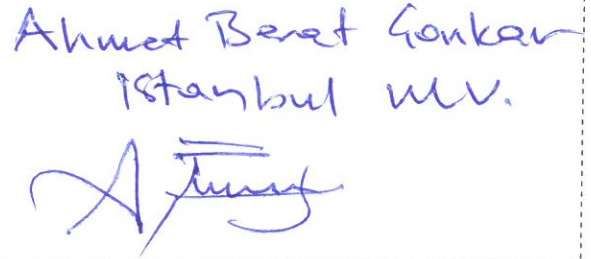 Ahmet Berat Çonkar
istanbul M.V.